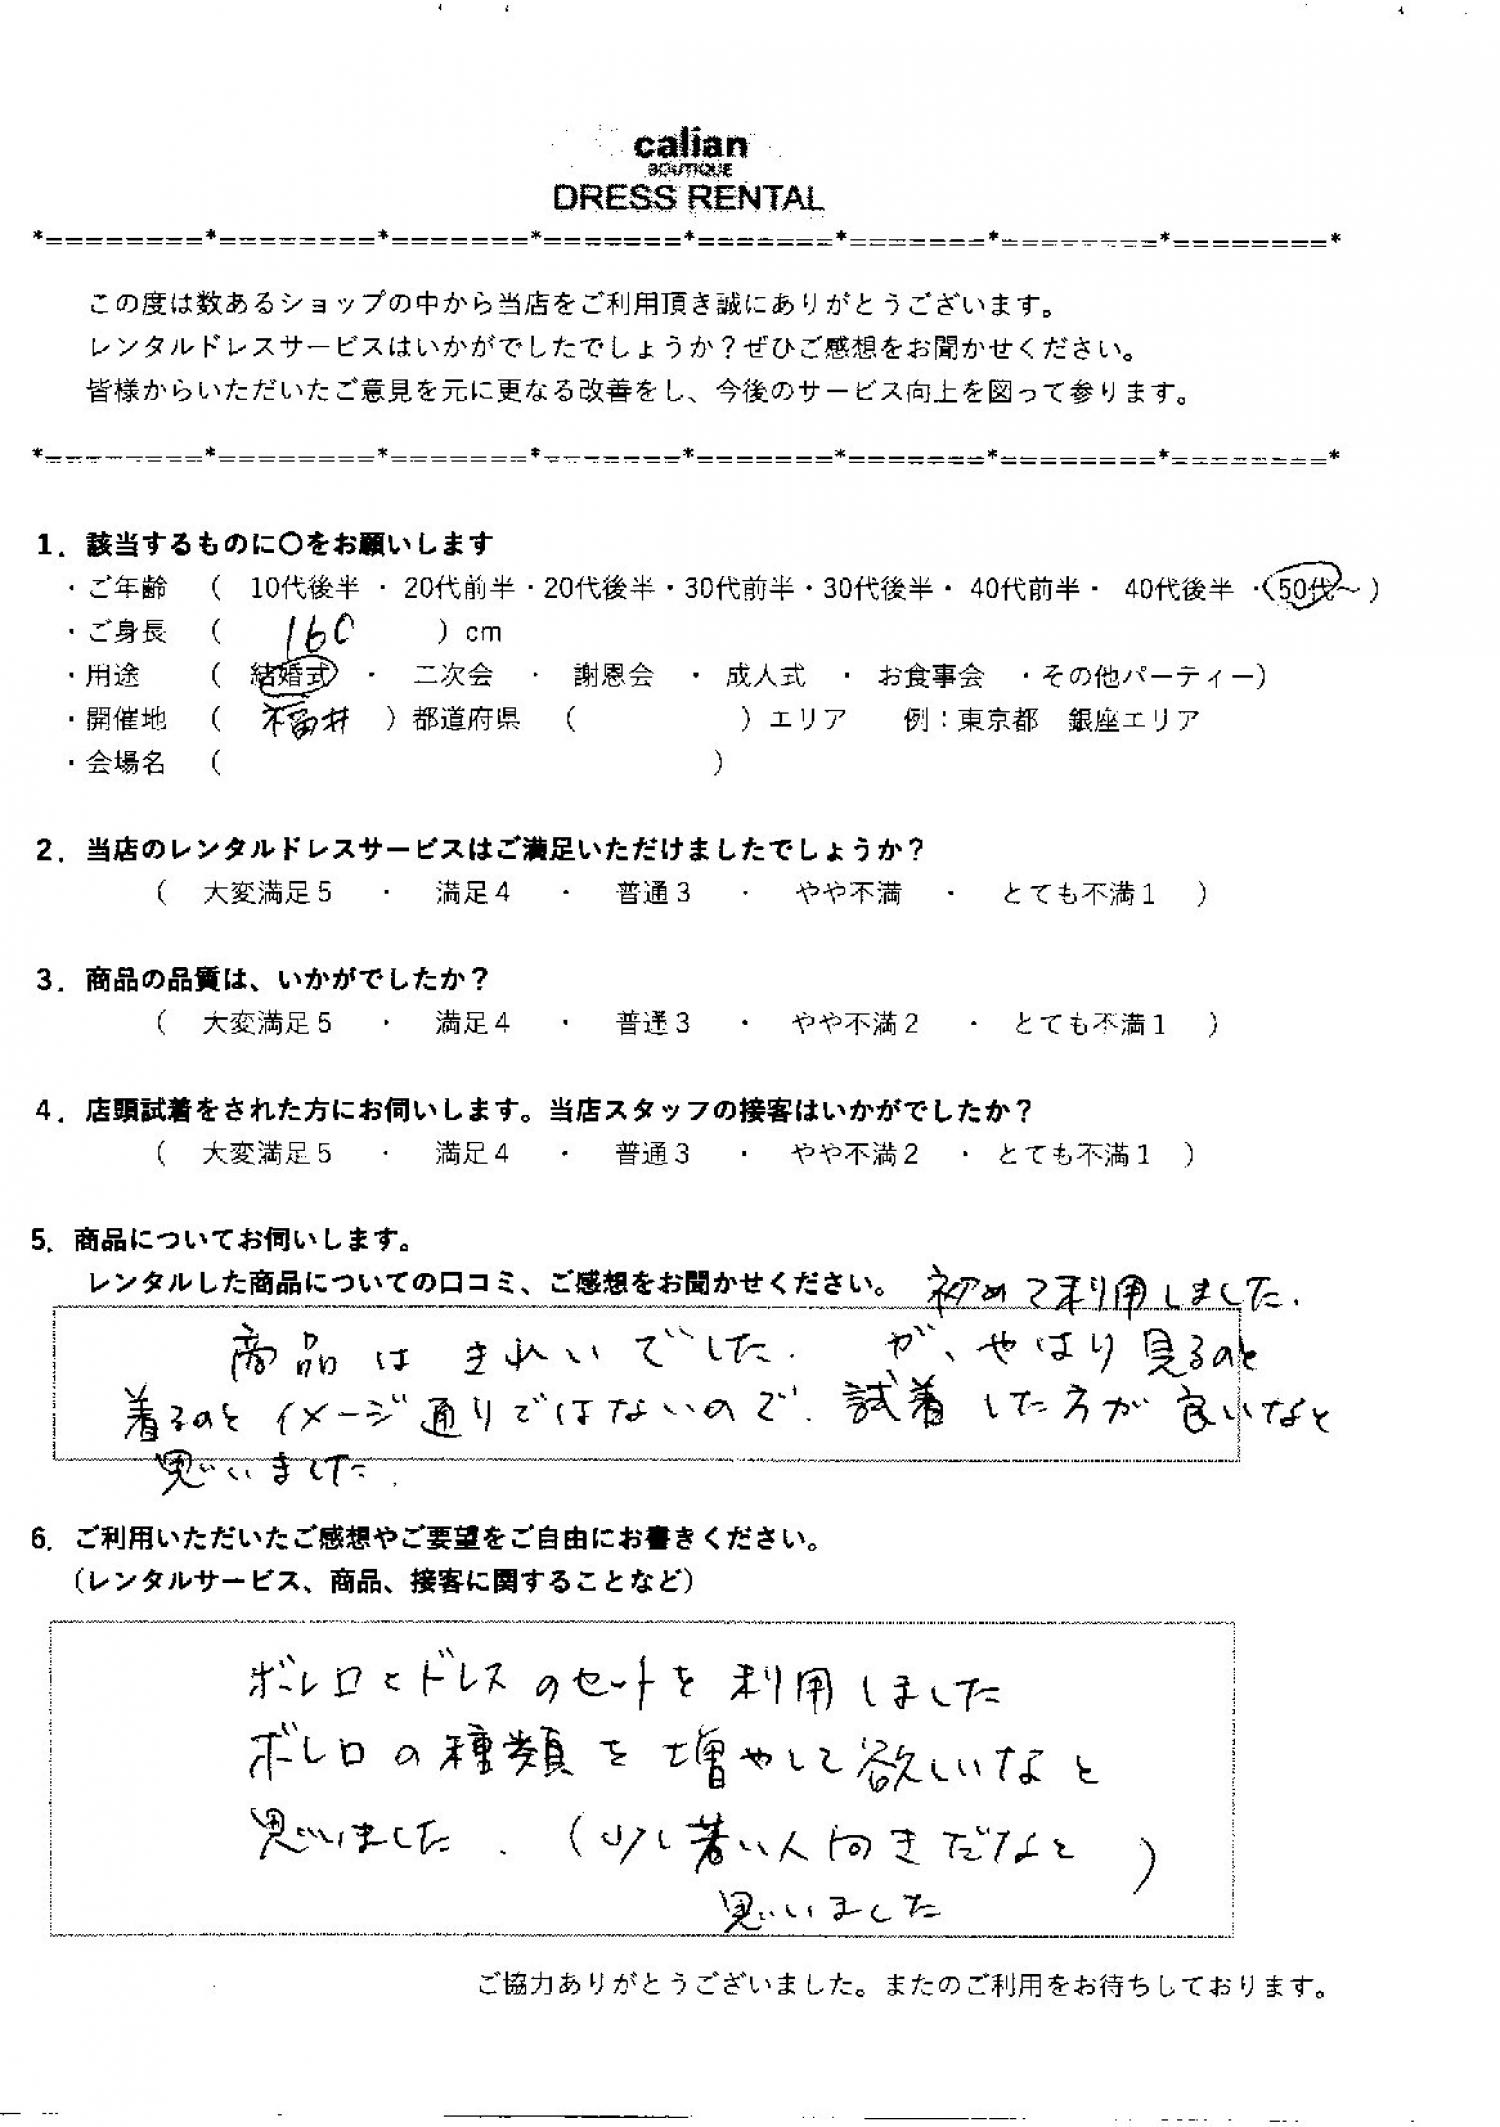 calian
BOUTIQUE
DRESS RENTAL
*========*========*=======*=======*=======*=======*========*========*
この度は数あるショップの中から当店をご利用頂き誠にありがとうございます。
レンタルドレスサービスはいかがでしたでしょうか？ぜひご感想をお聞かせください。
皆様からいただいたご意見を元に更なる改善をし、今後のサービス向上を図って参ります。
*========*========*=======*=======*=======*=======*========*========*
1．該当するものに〇をお願いします
・ご年齢 （ 10代後半 ・ 20代前半・20代後半・30代前半・30代後半・ 40代前半・ 40代後半 ・50代～）
・ご身長 （ 160 ）cm
・用途 （ 結婚式 ・ 二次会 ・ 謝恩会 ・ 成人式 ・ お食事会 ・その他パーティー）
・開催地 （ 福井 ）都道府県 （ ）エリア 例：東京都 銀座エリア
・会場名 （ ）
2．当店のレンタルドレスサービスはご満足いただけましたでしょうか？
（ 大変満足５ ・ 満足４ ・ 普通３ ・ やや不満 ・ とても不満１ ）
3．商品の品質は、いかがでしたか？
（ 大変満足５ ・ 満足４ ・ 普通３ ・ やや不満２ ・ とても不満１ ）
4．店頭試着をされた方にお伺いします。当店スタッフの接客はいかがでしたか？
（ 大変満足５ ・ 満足４ ・ 普通３ ・ やや不満２ ・ とても不満１ ）
5．商品についてお伺いします。
レンタルした商品についての口コミ、ご感想をお聞かせください。 初めて利用しました.
商品は きれいでした. が、やはり見るのと
着るのとイメージ通りではないので. 試着した方が良いなと
思いました.
6．ご利用いただいたご感想やご要望をご自由にお書きください。
（レンタルサービス、商品、接客に関することなど）
ボレロとドレスのセットを利用しました
ボレロの種類を増やして欲しいなと
思いました. （少し若い人向きだなと）
思いました
ご協力ありがとうございました。またのご利用をお待ちしております。